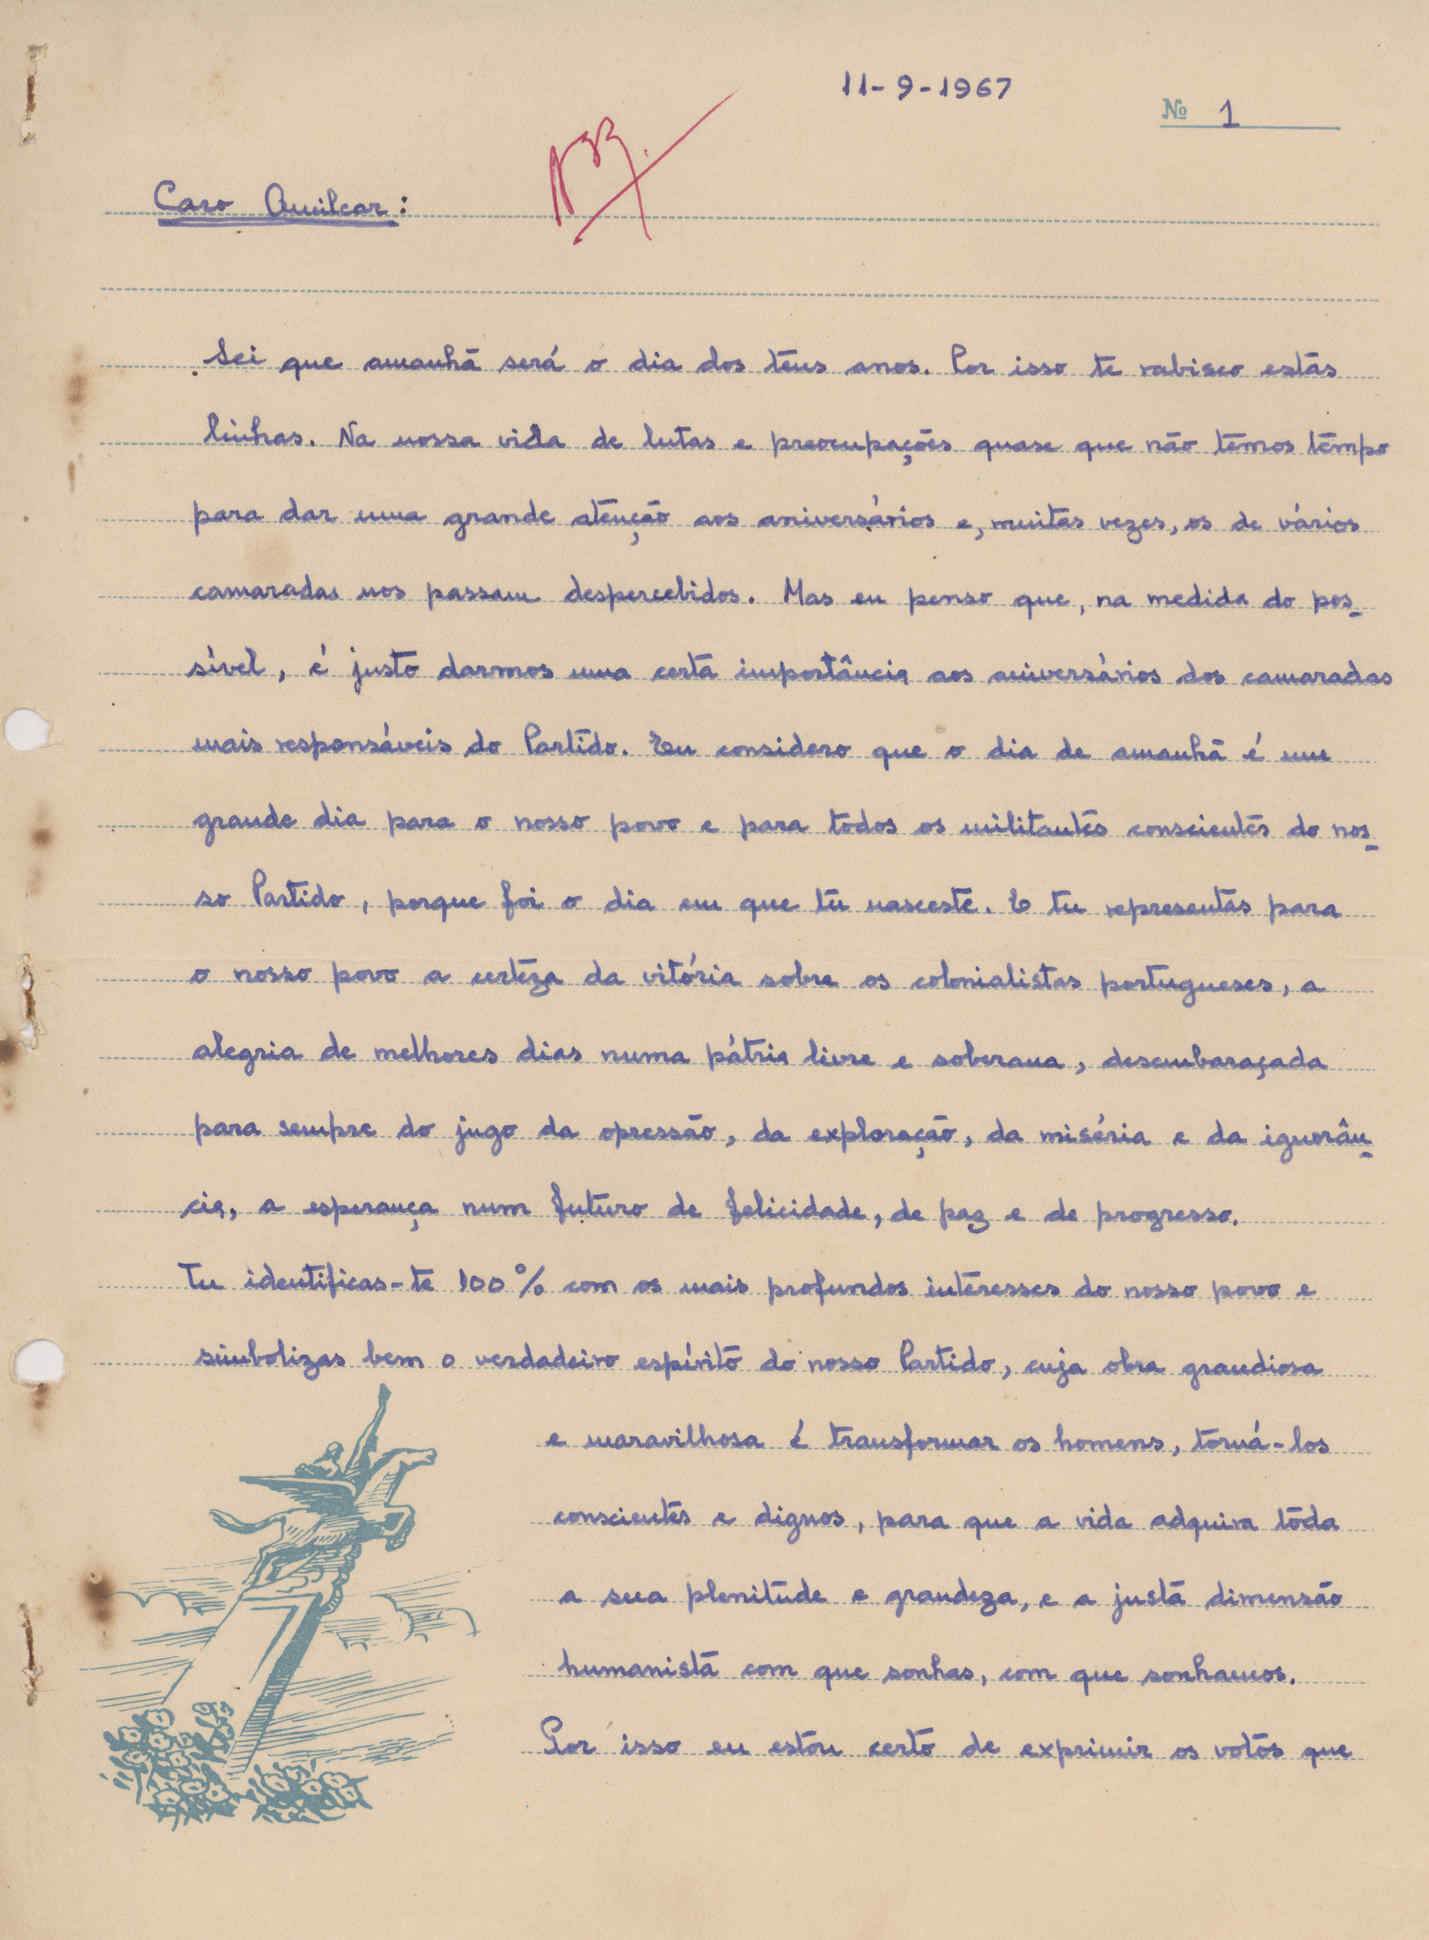 11-9-1967
Nº 1
Caro Amilcar:
Sei que amanhã será o dia dos teus anos. Por isso te rabisco estas
linhas. Na nossa vida de lutas e preocupações quase que não temos tempo
para dar uma grande atenção aos aniversários e, muitas vezes, os de vários
camaradas nos passam despercebidos. Mas eu penso que, na medida do pos-
sível, é justo darmos uma certa importância aos aniversários dos camaradas
mais responsáveis do Partido. Eu considero que o dia de amanhã é um
grande dia para o nosso povo e para todos os militantes conscientes do nos-
so Partido, porque foi o dia em que tu nasceste. E tu representas para
o nosso povo a certeza da vitória sobre os colonialistas portugueses, a
alegria de melhores dias numa pátria livre e soberana, desembaraçada
para sempre do jugo da opressão, da exploração, da miséria e da ignorân-
cia, a esperança num futuro de felicidade, de paz e de progresso.
Tu identificas-te 100% com os mais profundos interesses do nosso povo e
simbolizas bem o verdadeiro espírito do nosso Partido, cuja obra grandiosa
e maravilhosa é transformar os homens, torná-los
conscientes e dignos, para que a vida adquira toda
a sua plenitude e grandeza, e a justa dimensão
humanista com que sonhas, com que sonhamos.
Por isso eu estou certo de exprimir os votos que